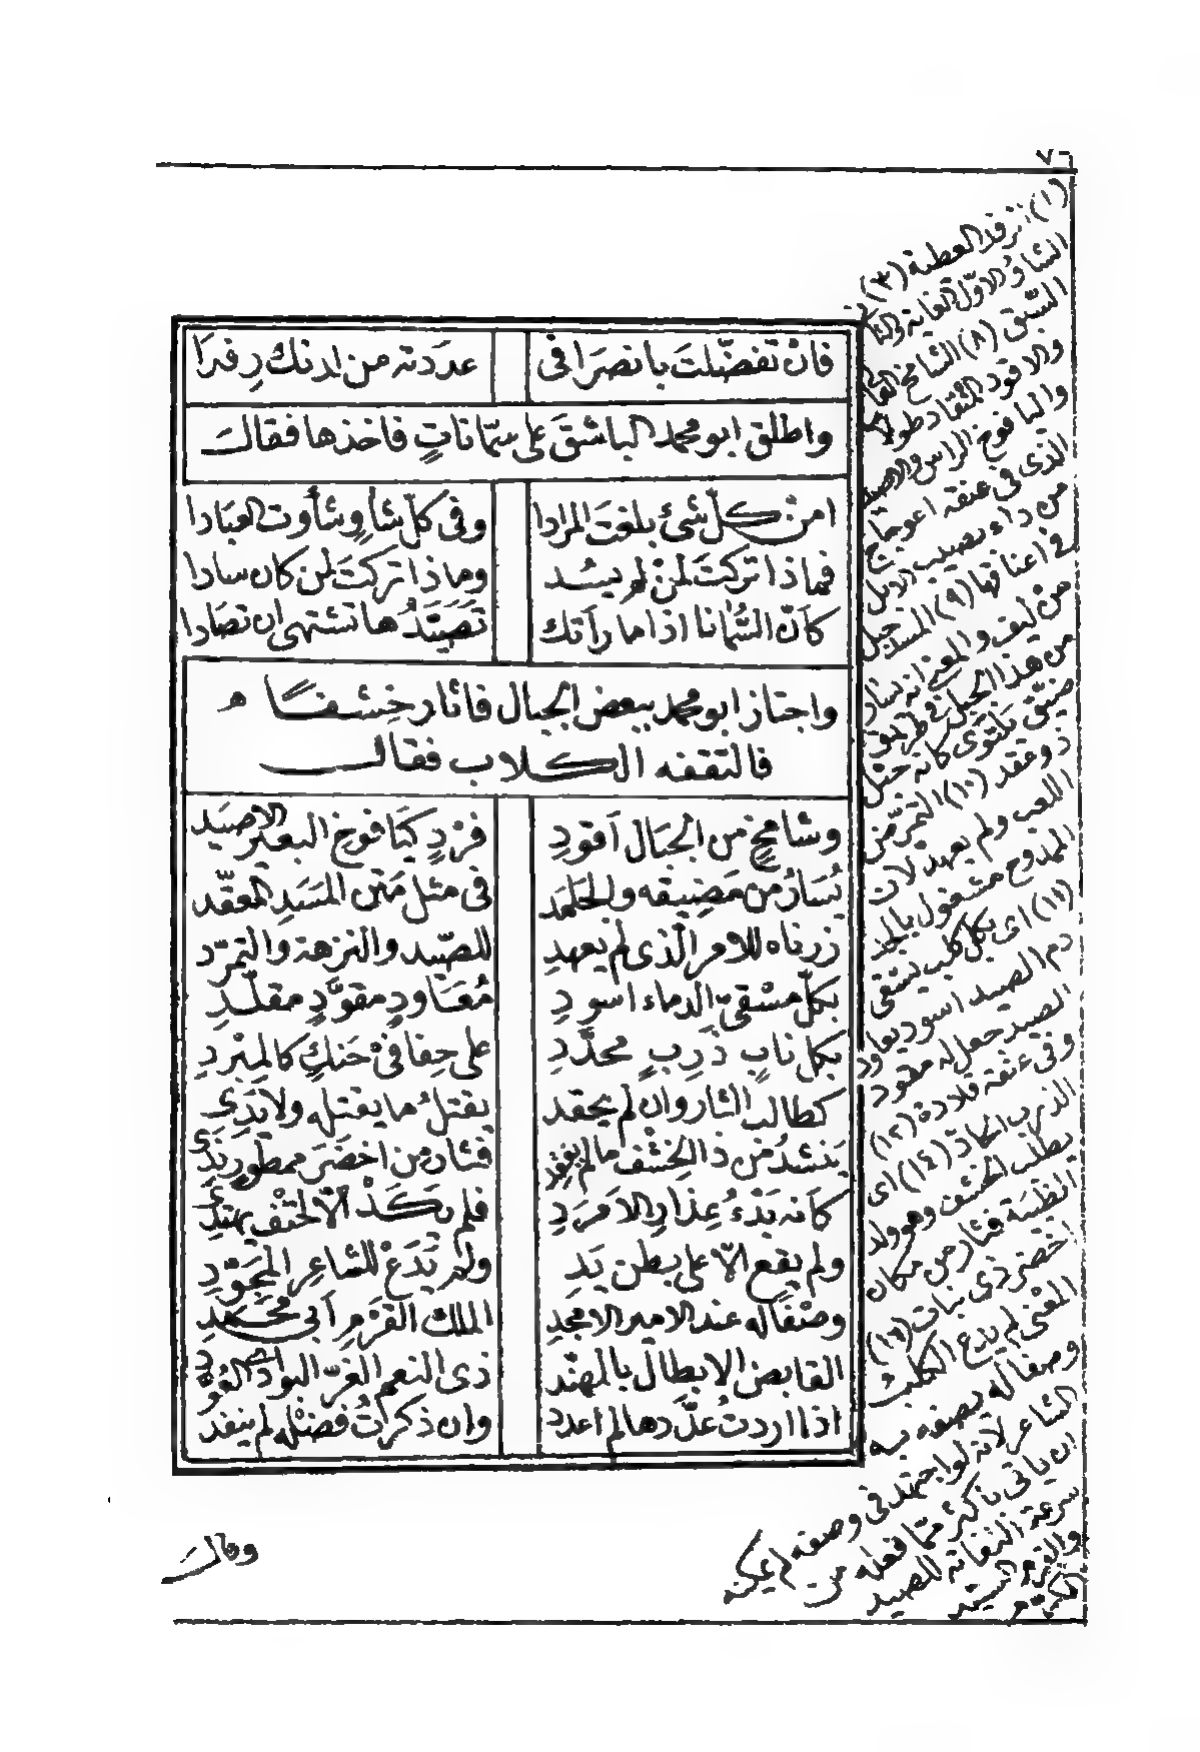 فانْ تفضّلتَ بانصرافى عددته من لدنك رِفدَا
واطلق ابو محمد الباشقَ على سمّاناتٍ فاخذها فقالَ
امنْ كلّ شئ بلغتَ المرادا وفى كلّ شأوٍ شأوت العبَادا
فماذا تركتَ لمنْ لم يسُد وماذا تركتَ لمن كان سادا
كأنّ السُّمانا اذا ما رأتك تَصَيَّدُها تشتهى ان تصَادا
واجتاز ابو محمد ببعض الجبال فاثار خِشفًا
فالتقفه الكلاب فقال
وشامخٍ من الجبَال اَقودِ فرْدٍ كيَافوخ البعير الاصيَد
يُسَارُ من مَضِيقه والجلمد فى مثل مَتن المسَدِ المعقّد
زرناه للامر الّذى لم يعهدِ للصّيد والنزهة والتمرّد
بكلّ مسْقىّ الدماء اسودِ مُعَاودٍ مقوَّدٍ مقلّدِ
بكل نابٍ ذَرِبٍ محدَّدِ على حِفافىْ حَنكٍ كالمبْردِ
كطالب الثار وان لم يحقد يقتلُ ما يقتله ولا يَدِى
يَنشدُ من ذا الخِشْف ما لم يفقد فثار من اخضَرَ ممطورٍ نَدِى
كانه بَدْءُ عِذارِ الامرَدِ فلم يكَدْ الّا لحتْف يهتدِى
ولم يقع الّا على بطن يَدِ ولم يَدَعْ للشاعِر المجَوّدِ
وصْفًا له عند الامير الامجدِ الملك القَرْمِ اَبى محَمدِ
القانص الابطال بالمهنّد ذى النعم الغرّ البوادى العُوّد
اذا اردتُ عدّها لم اعدد وان ذكرتُ فضْله لم ينفد
وقال
(١) الرفد العطية (٣)
الشاو الاوّل الغاية
السّبق (٨) الشامخ العالى
والاقود المنقاد طولا
واليافوخ الراس والاصيد
الذى فى عنقه اعوجاج
من داء يصيب الابل
فى اعناقها (٩) المسد حبل
من ليف والمعنى انه يسار
من هذا الجبل فى طريق
ضيّق يلتوى كانه حبل
ذو عقد (١٠) التمرّد من
اللعب ولم يعهد لان
الممدوح مشغول بالجد
(١١) اى بكل كلب يسقى
دم الصيد اسود يعاود
الصيد جعل له مقود
وفى عنقه قلادة (١٢)
الذرب الحادّ (١٤) اى
يطلب الخشف وهو ولد
الظبية فثار من مكان
اخضر ذى نبات (١٦)
المعْنى لم يدع الكلب
وصفا له يصفه به
الشاعر لانه لو اجتهد فى وصفه لم يمكنه
ان ياتى باكثر ممّا فعله من
سرعة التقافه للصيد
والقرم السيّد
الكريم